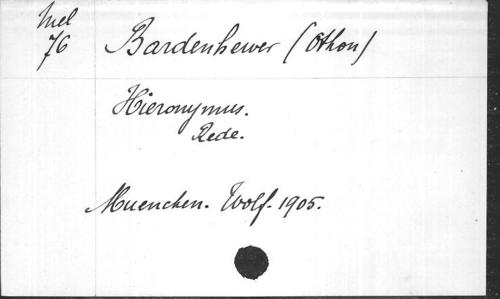 Mel
76
Bardenhewer (Othon)
Hieronymus.
Rede.
Muenchen. Wolf. 1905.